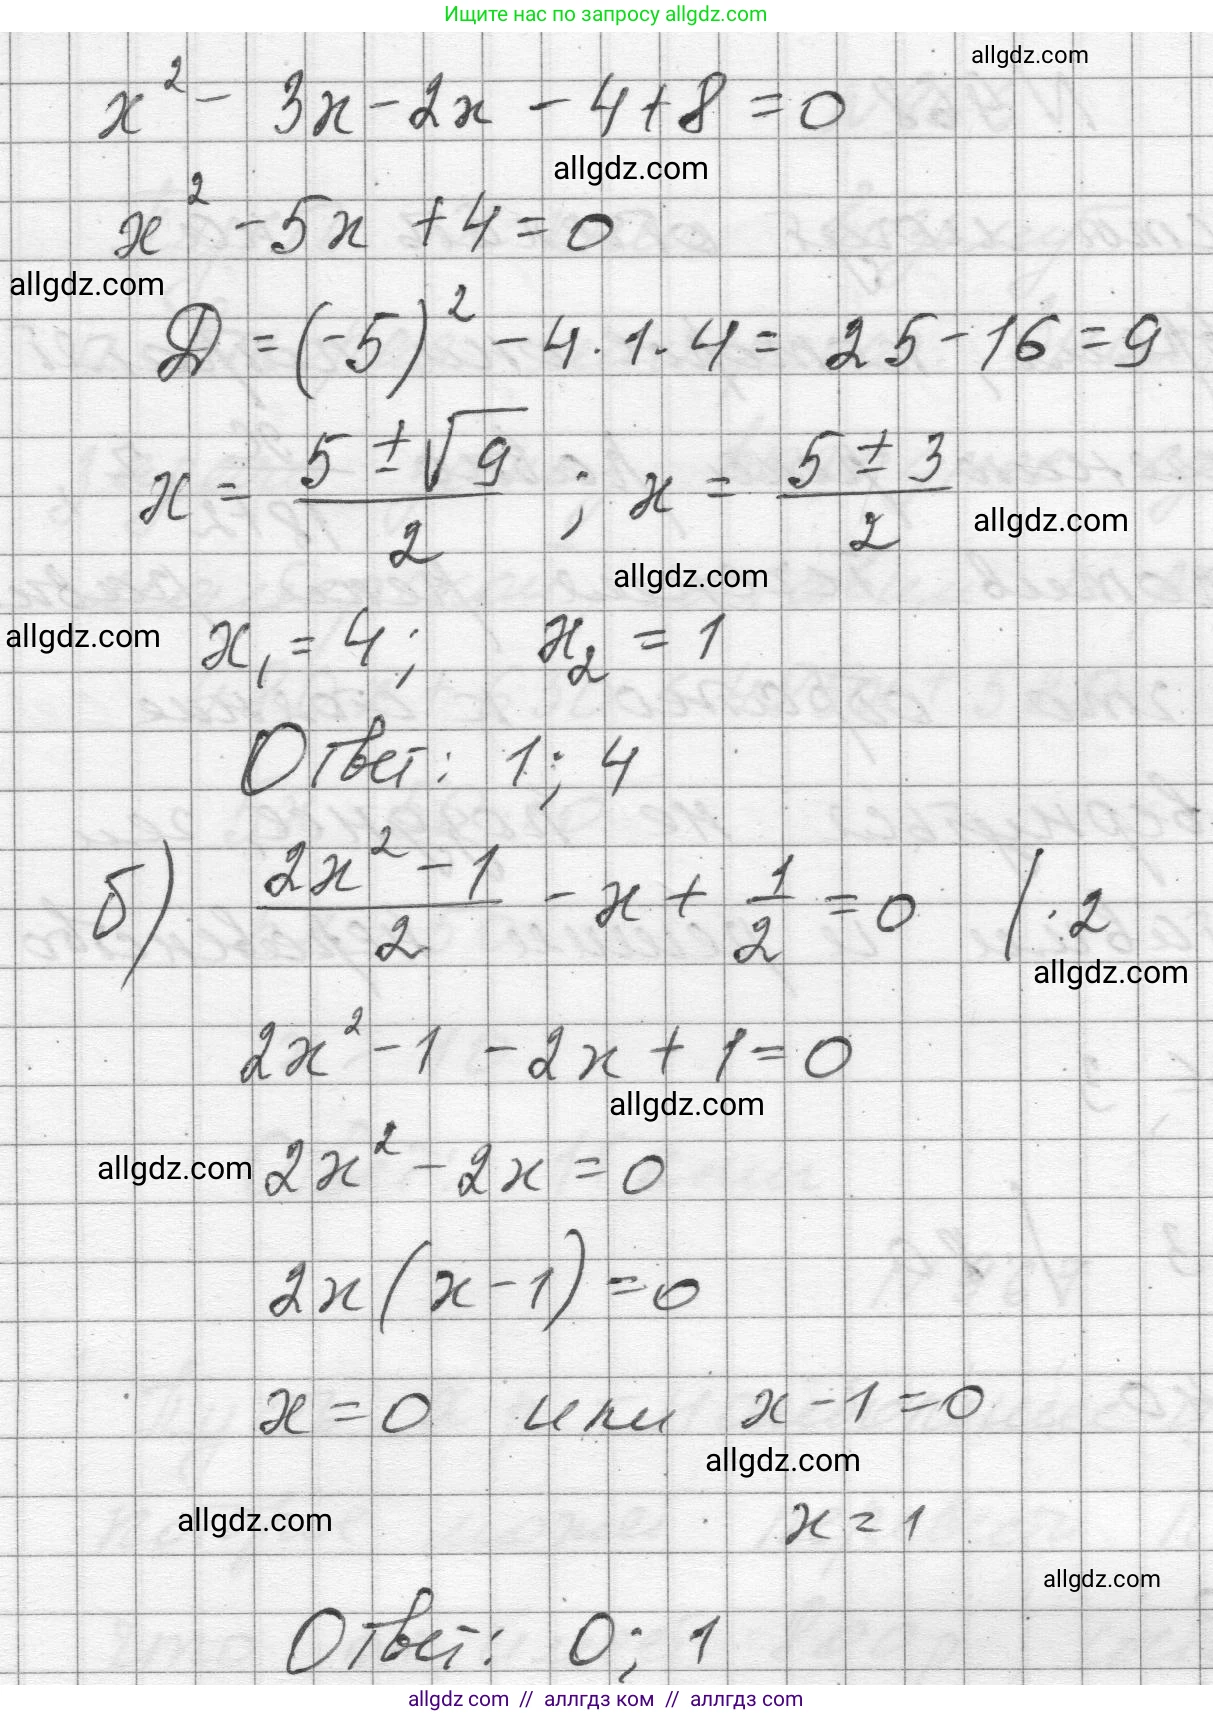 Ищите нас по запросу allgdz.com
allgdz.com
x² - 3x - 2x - 4 + 8 = 0
allgdz.com
x² - 5x + 4 = 0
allgdz.com
Д = (-5)² - 4 · 1 · 4 = 25 - 16 = 9
x = (5 ± √9)/2 ; x = (5 ± 3)/2
allgdz.com
allgdz.com
allgdz.com
x₁ = 4; x₂ = 1
Ответ: 1; 4
б) (2x² - 1)/2 - x + 1/2 = 0 / · 2
allgdz.com
2x² - 1 - 2x + 1 = 0
allgdz.com
allgdz.com
2x² - 2x = 0
2x(x - 1) = 0
x = 0 или x - 1 = 0
allgdz.com
allgdz.com
x = 1
allgdz.com
Ответ: 0; 1
allgdz.com // аллгдз ком // аллгдз.com